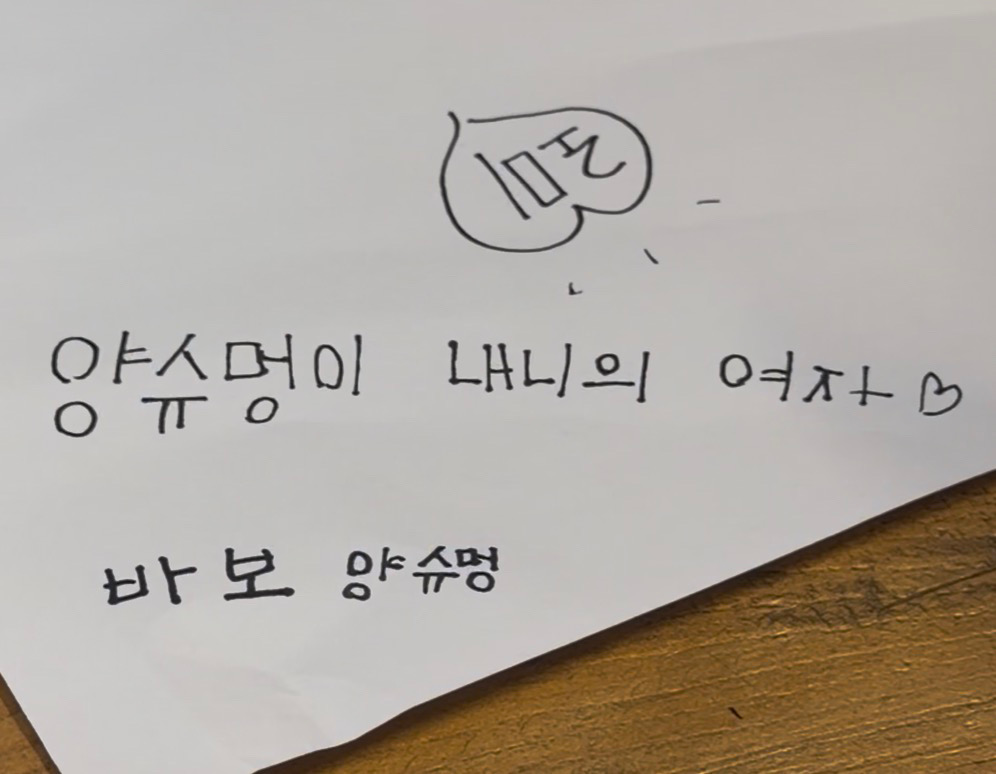 양슈멍이 내니의 여자♡
바보 양슈멍